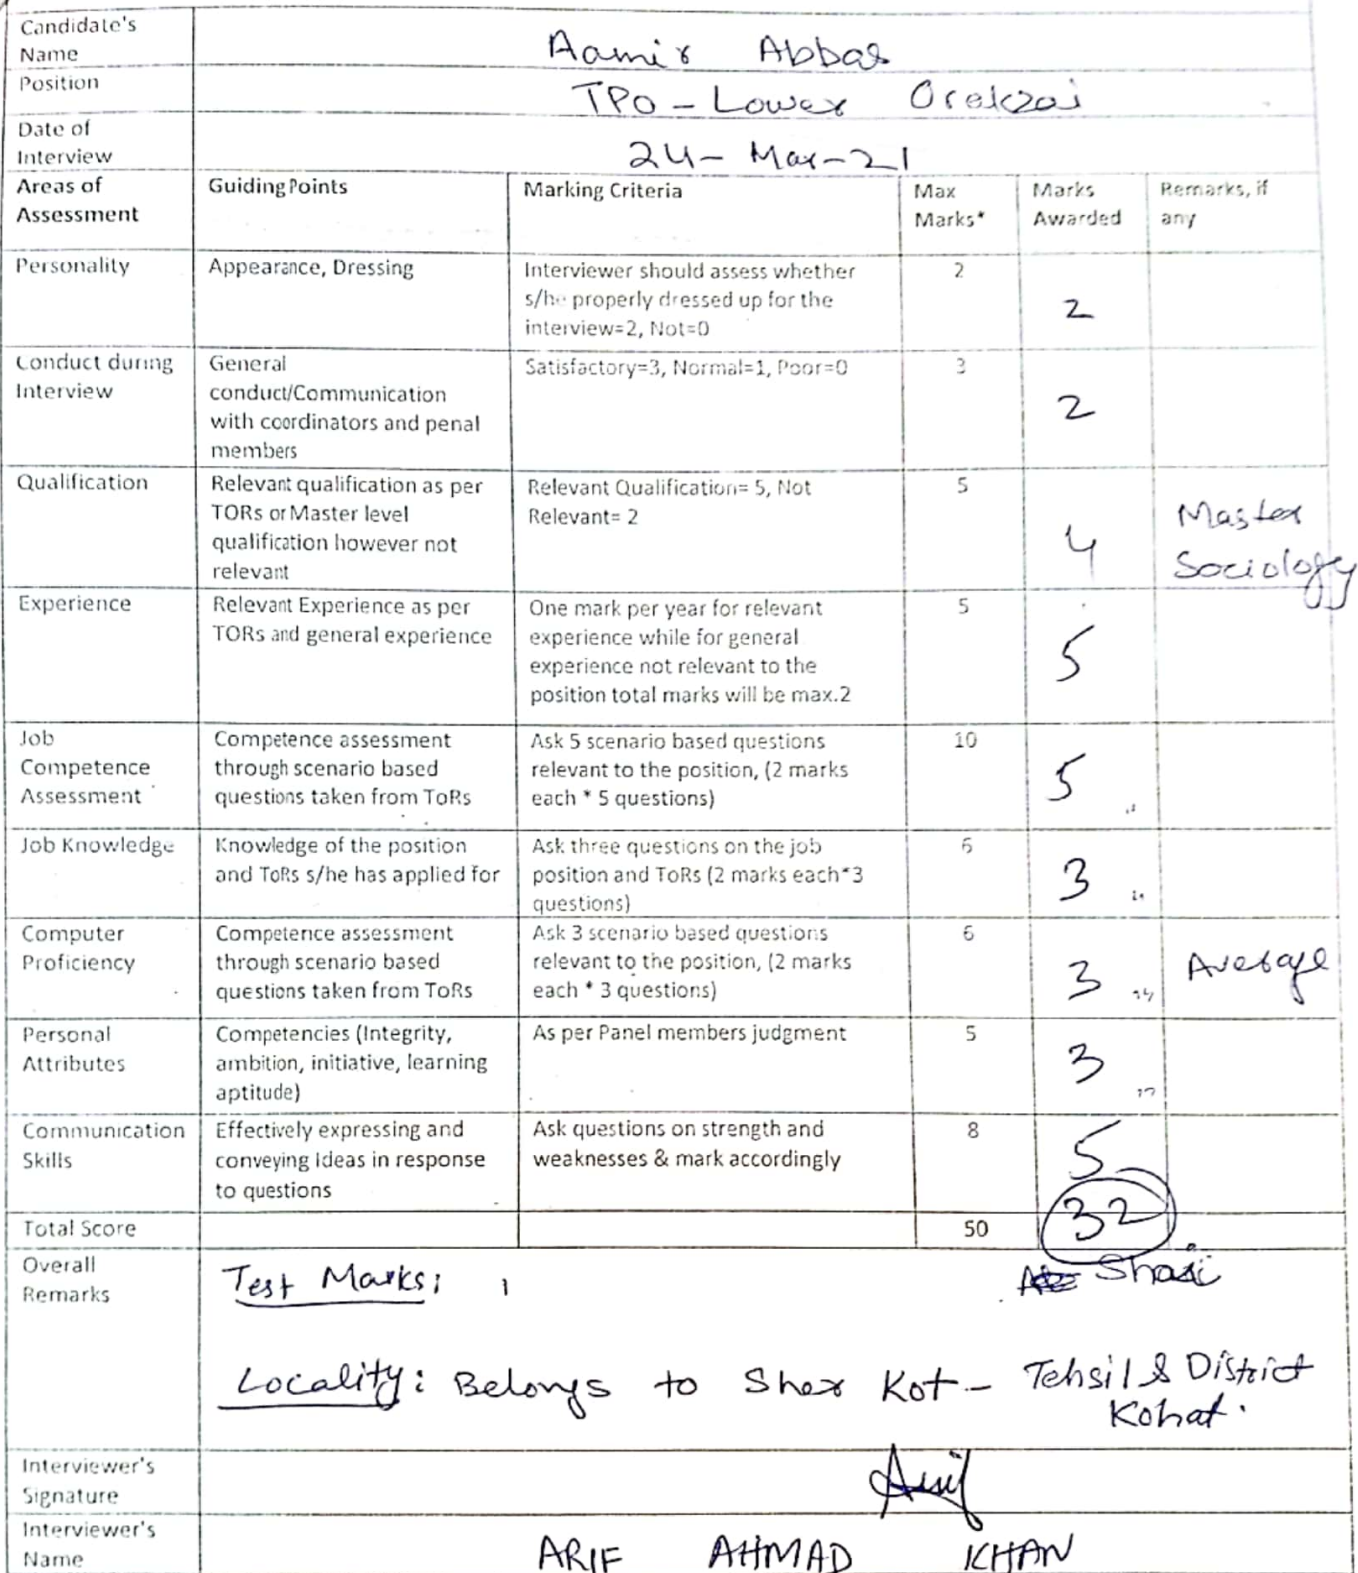 Candidate's
Name
Aamir Abbas
Position
TPO - Lower Orakzai
Date of
Interview
24 - Mar - 21
Areas of
Assessment
Guiding Points
Marking Criteria
Max
Marks*
Marks
Awarded
Remarks, if
any
Personality
Appearance, Dressing
Interviewer should assess whether
s/he properly dressed up for the
interview=2, Not=0
2
2
Conduct during
Interview
General
conduct/Communication
with coordinators and penal
members
Satisfactory=3, Normal=1, Poor=0
3
2
Qualification
Relevant qualification as per
TORs or Master level
qualification however not
relevant
Relevant Qualification= 5, Not
Relevant= 2
5
4
Master
Sociology
Experience
Relevant Experience as per
TORs and general experience
One mark per year for relevant
experience while for general
experience not relevant to the
position total marks will be max.2
5
5
Job
Competence
Assessment
Competence assessment
through scenario based
questions taken from ToRs
Ask 5 scenario based questions
relevant to the position, (2 marks
each * 5 questions)
10
5
Job Knowledge
Knowledge of the position
and ToRs s/he has applied for
Ask three questions on the job
position and ToRs (2 marks each*3
questions)
6
3
Computer
Proficiency
Competence assessment
through scenario based
questions taken from ToRs
Ask 3 scenario based questions
relevant to the position, (2 marks
each * 3 questions)
6
3
Average
Personal
Attributes
Competencies (Integrity,
ambition, initiative, learning
aptitude)
As per Panel members judgment
5
3
Communication
Skills
Effectively expressing and
conveying ideas in response
to questions
Ask questions on strength and
weaknesses & mark accordingly
8
5
Total Score
50
32
Overall
Remarks
Test Marks:
Locality: Belongs to Sher Kot - Tehsil & District
Kohat.
Interviewer's
Signature
Interviewer's
Name
ARIF AHMAD KHAN